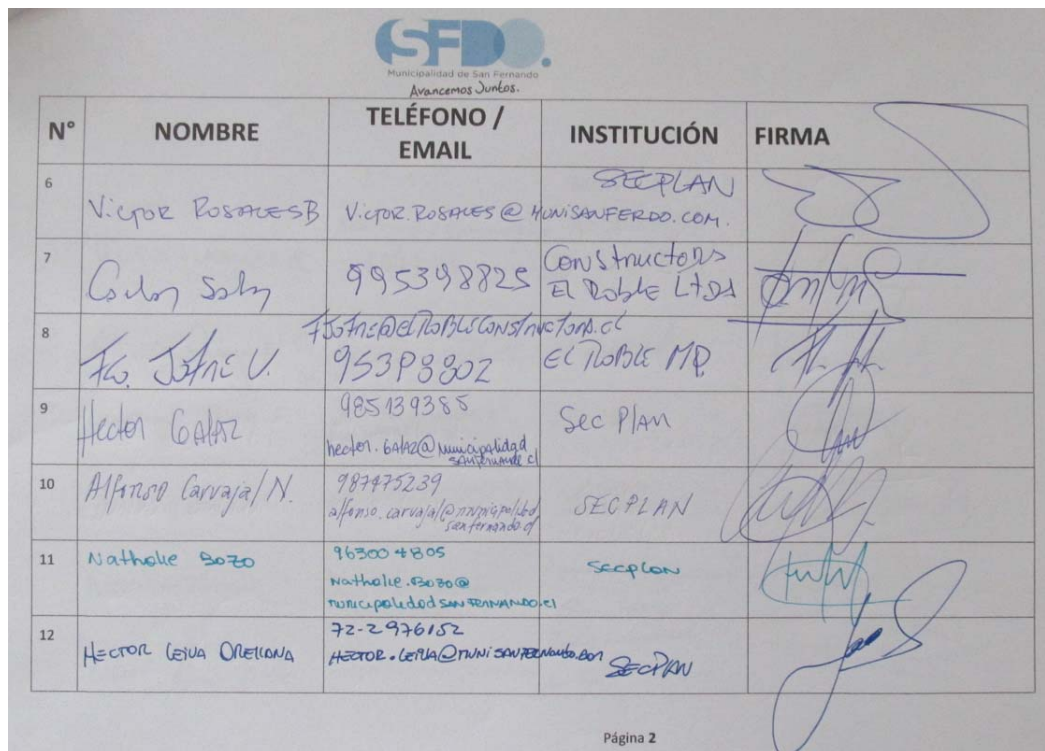 SFDO.
Municipalidad de San Fernando
Avancemos Juntos.
N° NOMBRE TELÉFONO / EMAIL INSTITUCIÓN FIRMA
6 Victor Rosales B Victor.Rosales@munisanferdo.com. SECPLAN
7 Carlos 995398825 Constructora
El Roble Ltda
8 FJofre@elRobleConstructora.cl
Fco. Jofré V. 95398802 El Roble
9 Hector Galaz 985139385 Sec Plan
hector.galaz@municipalidad
sanfernando.cl
10 Alfonso Carvajal N. 987475239 SECPLAN
alfonso.carvajal@municipalidad
sanfernando.cl
11 Nathalie Bozo 963004805 Secplan
Nathalie.Bozo@
municipalidadSANFERNANDO.cl
12 72-2976152
HECTOR LEIVA ORELLANA HECTOR.LEIVA@MUNISANFERNANDO.COM SECPLAN
Página 2